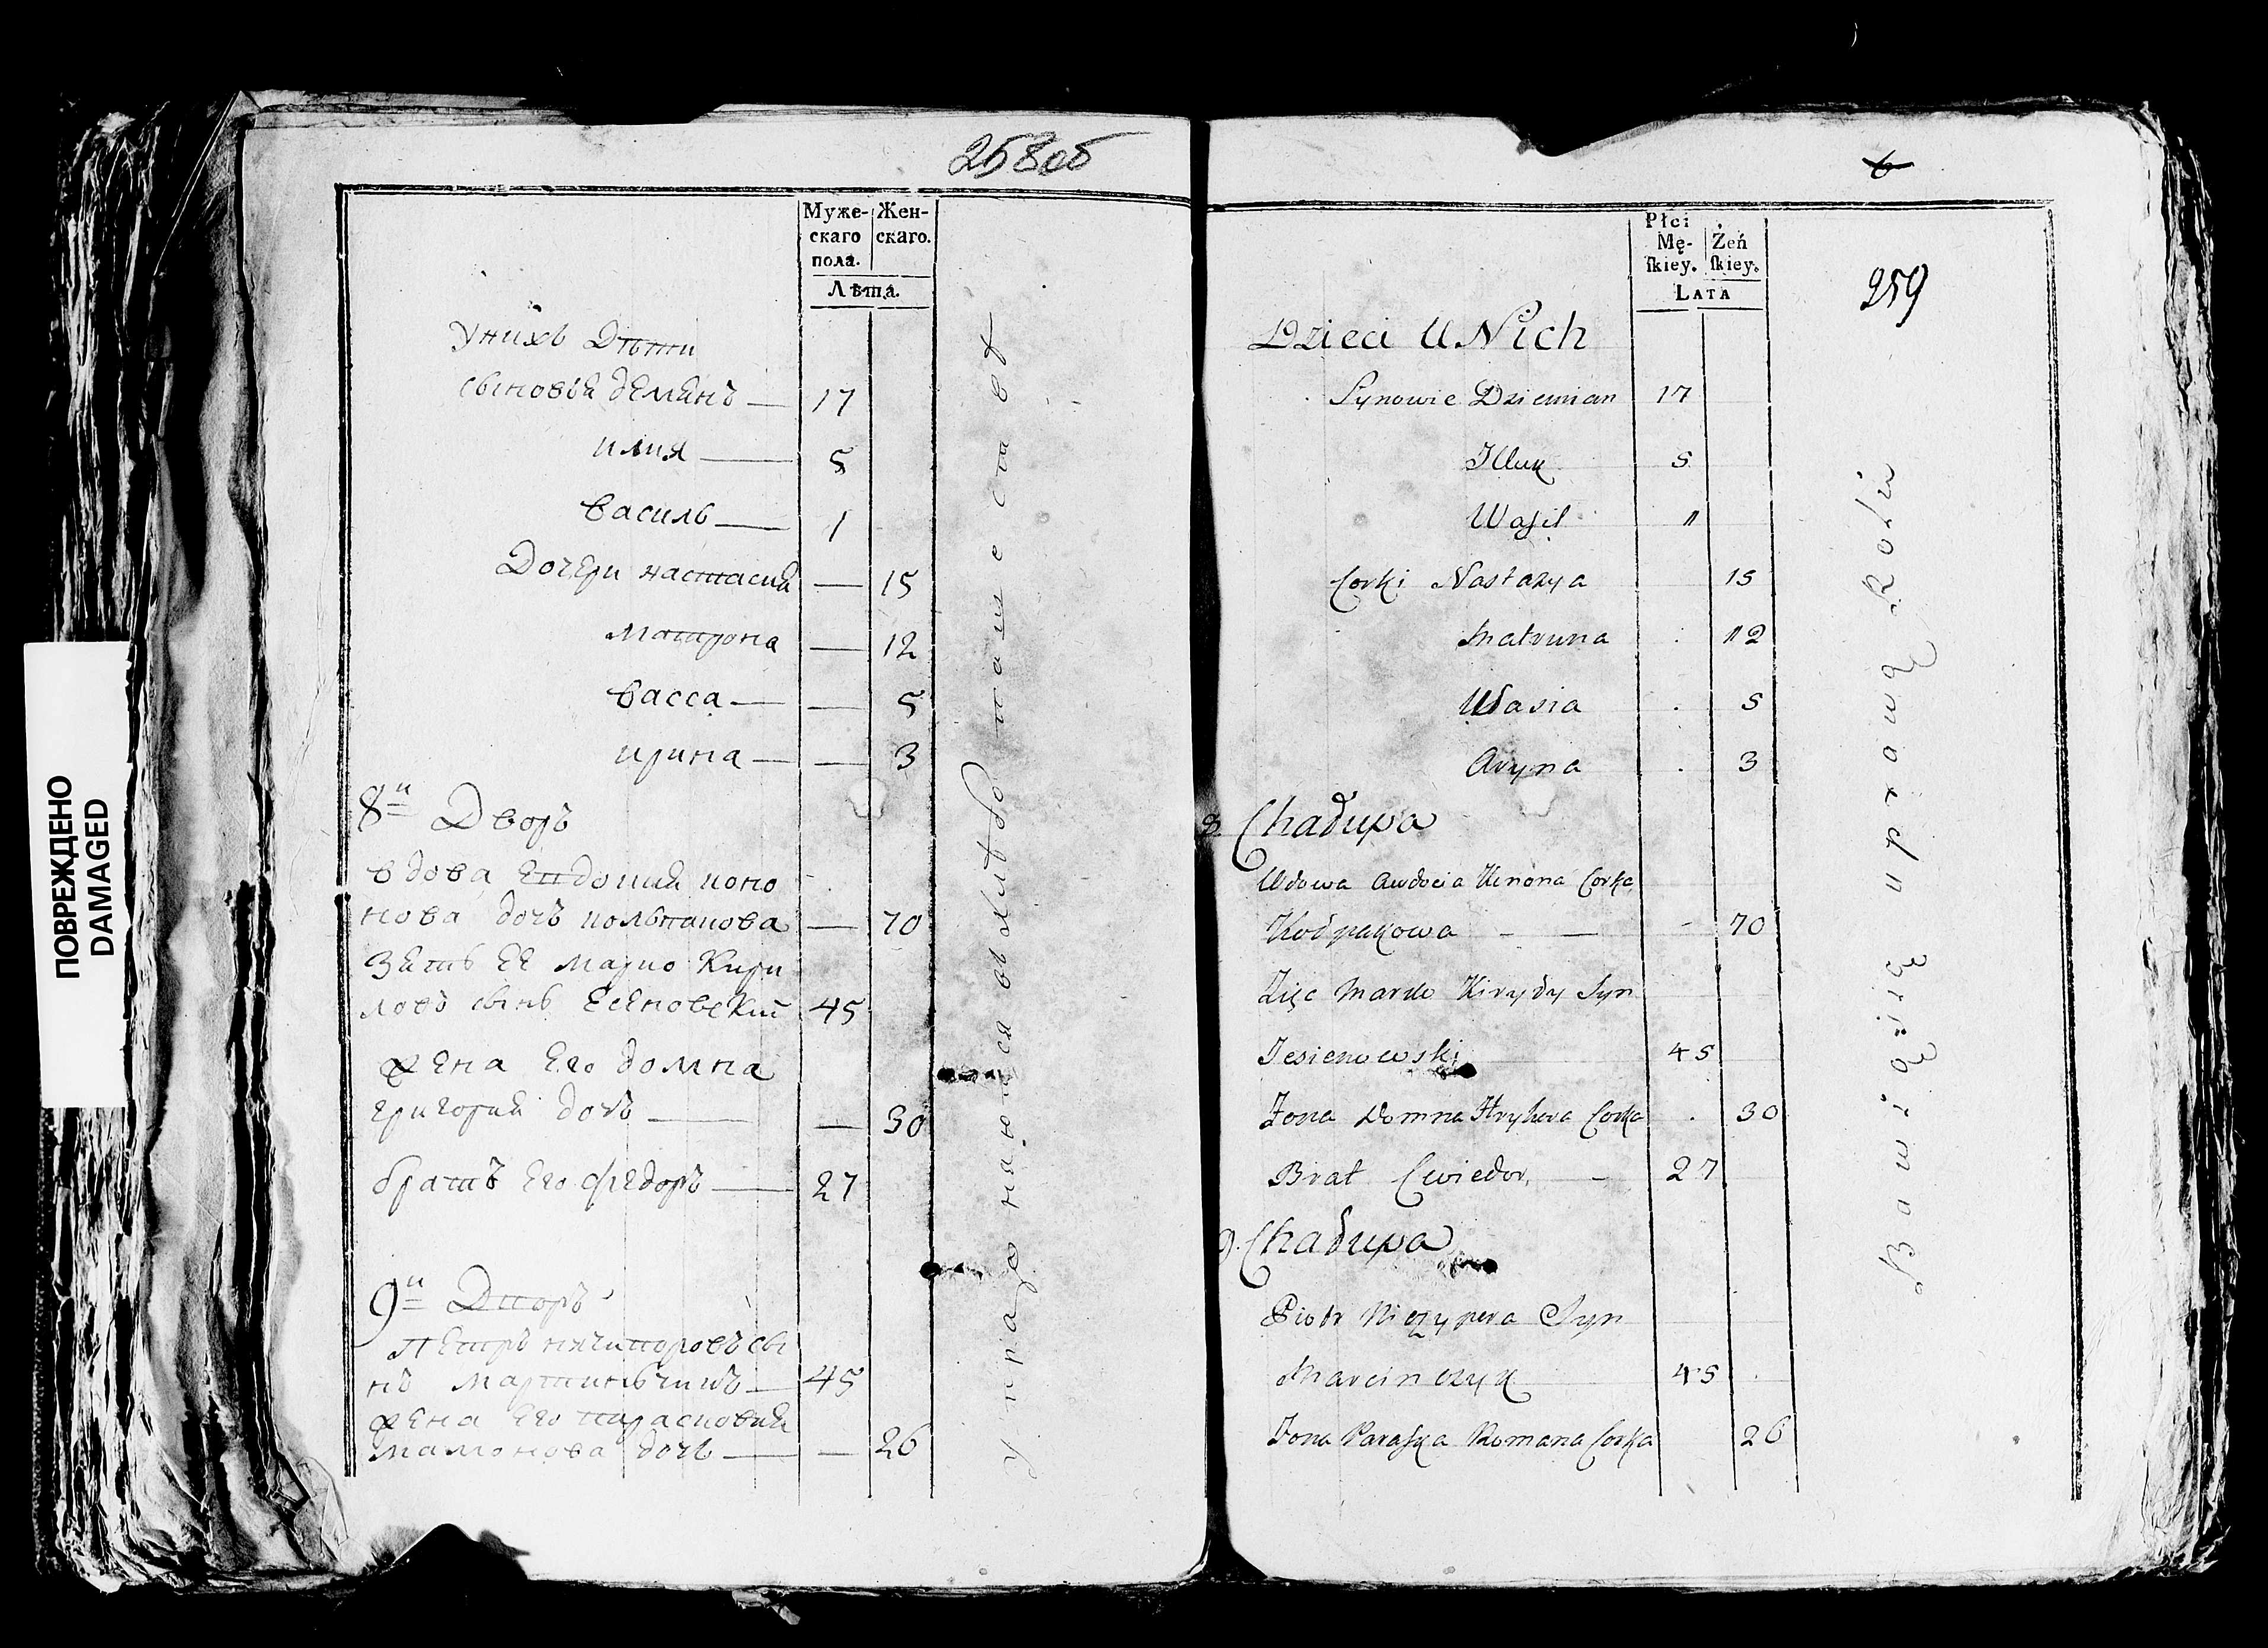 ПОВРЕЖДЕНО
DAMAGED
258об
Муже-
скаго
пола.
Жен-
скаго.
Лѣта.
У нихъ Дѣти
сыновья демянъ — 17
илия — 5
василь — 1
Дочери настасия — 15
матрона — 12
васса — — 5
ирина — — 3
8й Дворъ
вдова Евдокия коно
нова дочь колпакова — 70
Зять ее марко Кири
ловъ сынъ Есеновский 45
жена Его домна
григория дочь — — 30
братъ Его федоръ — 27
9й Дворъ
Петръ нячипоровъ сы
нъ мартинъчикъ — 45
жена Его парасковия
мамонова дочь — — 26
упражняются въ хлебопашестве
6
259
Płci
Mę-
skiey.
Żeń
skiey.
Lata
Dzieci U Nich
Synowie Dziemian 17
Illuk 5
Wasil 1
Corki Nastazya 15
Matruna 12
Wasia 5
Aryna 3
8 Chałupa
Wdowa Awdocia Kinona Corka
Kołpakowa — — 70
Zięc Marko Kiryły Syn
Jesienowski 45
Żona Domna Hryhora Corka 30
Brat Cwiedor — 27
9. Chałupa
Piotr Niczypera Syn
Marcinczyk 45
Żona Paraska Romana Corka 26
Bawią się uprawą Roli